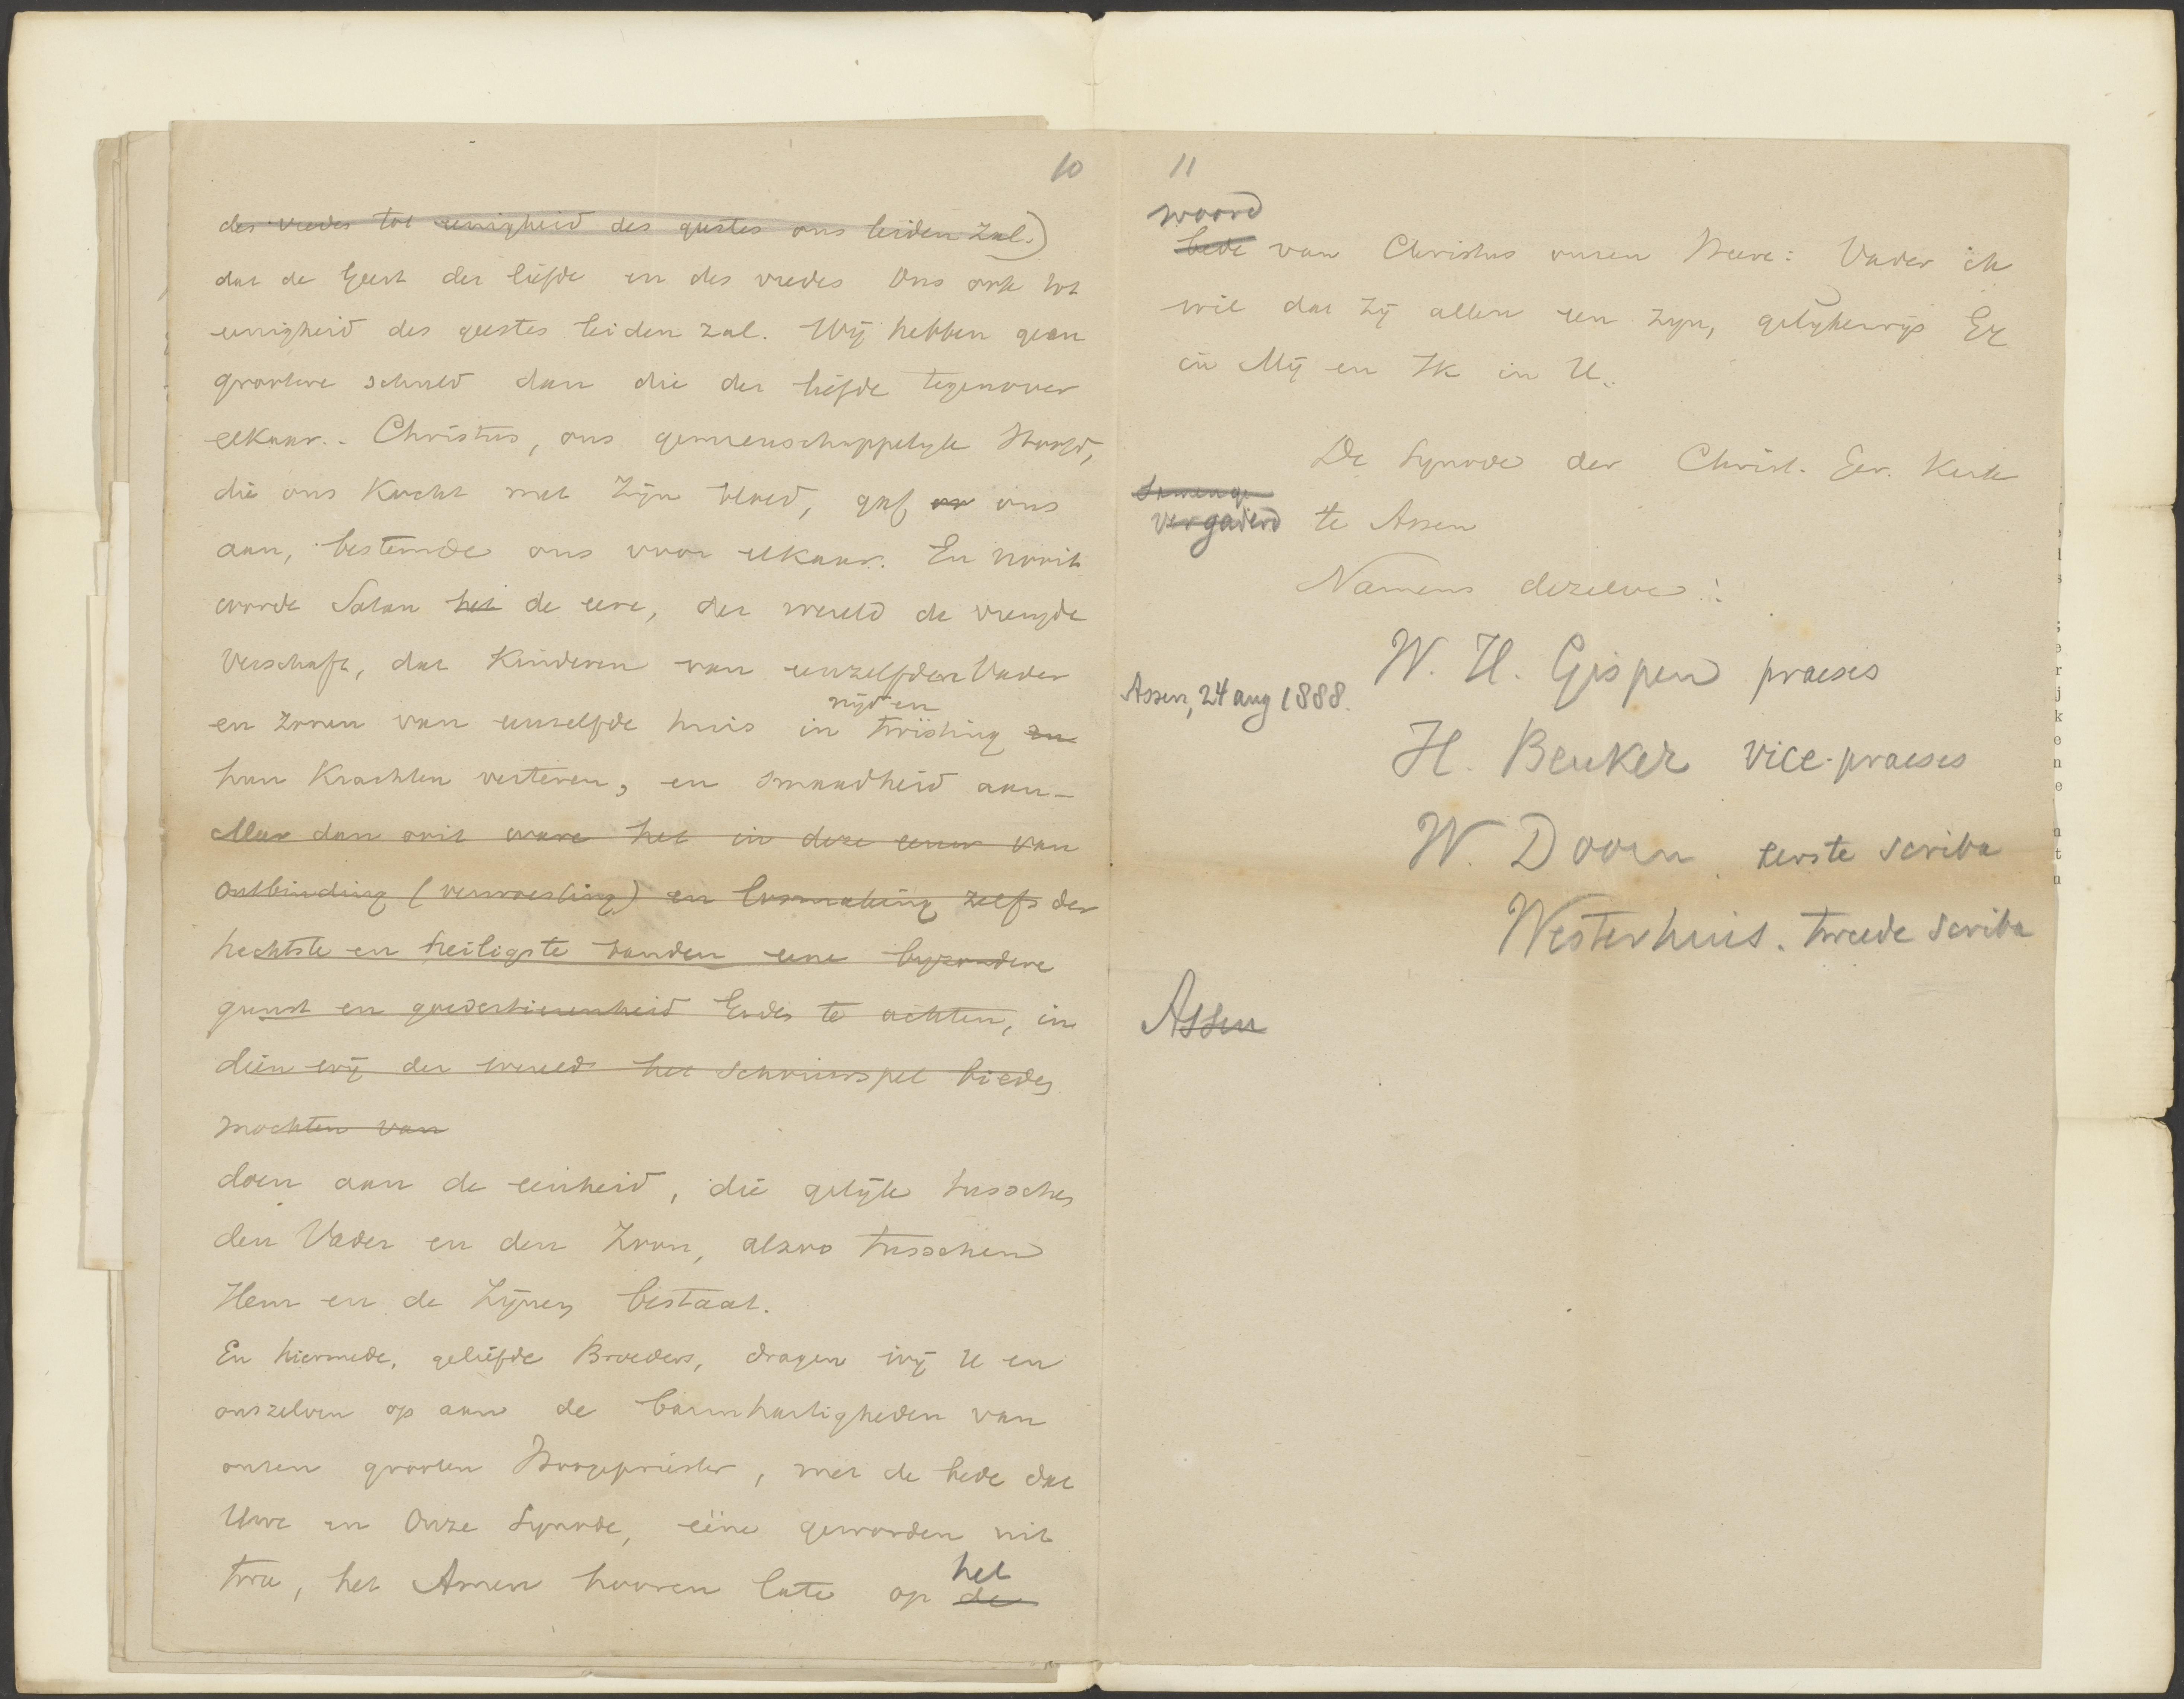 10
des vredes tot eenigheid des geestes ons leiden zal.)
dat de Geest der liefde en des vredes Ons ook tot
eenigheid des geestes leiden zal. Wij hebben geen
grootere schuld dan die der liefde tegenover
elkaar. - Christus, ons gemeenschappelijk Hoofd,
die ons Kocht met Zijn bloed, gaf ons
aan, bestemde ons voor elkaar. En nooit
worde Satan het de eere, der wereld de vreugde
verschaft, dat Kinderen van eenzelfden Vader
nijd en
en zonen van eenzelfde huis in twisting
hun Krachten verteren, en smaadheid aan-
Meer dan ooit ware het in deze eeuw van
ontbinding (verwoesting) en losmaking zelfs der
hechtste en heiligste banden eene byzondere
gunst en goedertierenheid Gods te achten, in
dien wij der wereld het schouwspel bieden
mochten van
doen aan de eenheid, die gelijk tusschen
den Vader en den Zoon, alzoo tusschen
Hem en de Zijnen bestaat.
En hiermede, geliefde Broeders, dragen wij U en
onszelven op aan de barmhartigheden van
onzen grooten Hoogepriester, met de bede dat
Uwe en Onze Synode, eéne geworden uit
twee, het Amen hooren late op de
het
11
woord
bede van Christus onzen Heere: Vader ik
wil dat Zij allen een zyn, gelykerwijs Gy
in Mij en Ik in U.
De Synode der Christ. Ger. Kerk
Samenge
vergaderd te Assen
Namens dezelve:
W. H. Gispen praeses
Assen, 24 aug 1888.
H. Beuker vice-praeses
W. Doorn eerste scriba
Westerhuis. tweede scriba
Assen